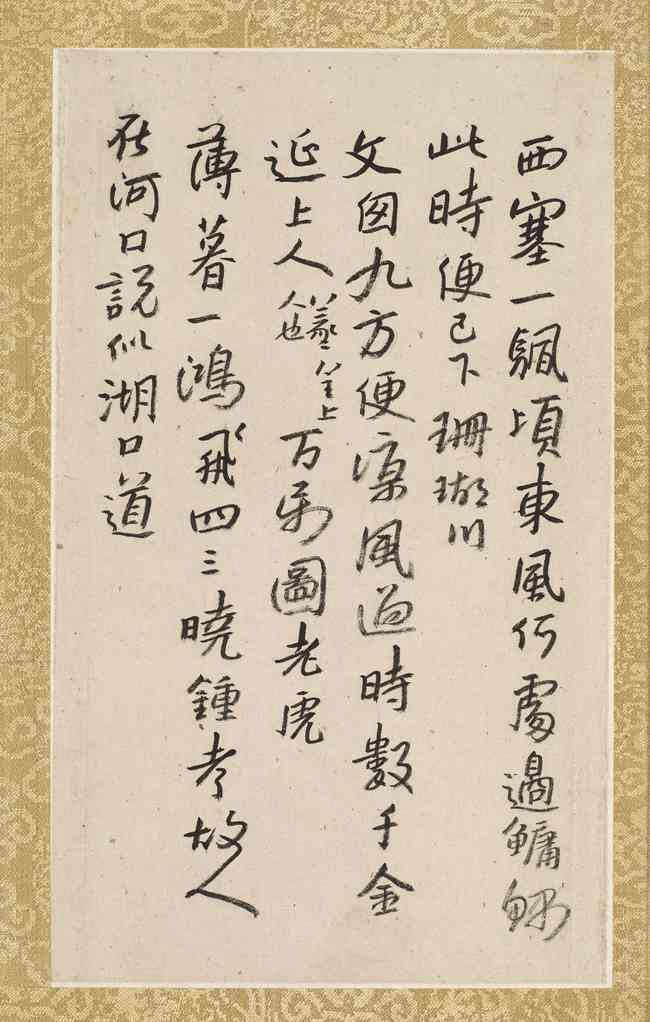 西塞一飄頃東風何處邊鱅
此時便已下珊瑚川
文囪九方便凜風過時數千金
延上人 上 人也 万 圖老虎
薄暮一鴻飛四三曉鍾考故人
在河口說似湖口道